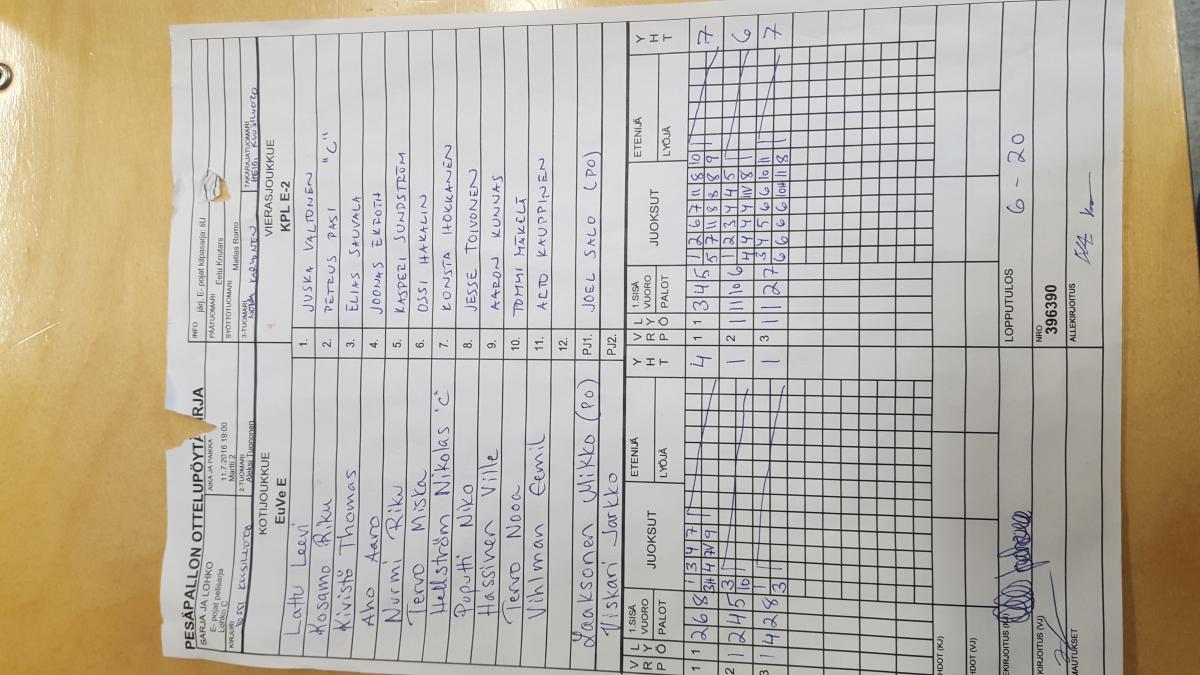 PESÄPALLON OTTELUPÖYTÄ RJA
SARJA JA LOHKO
E- pojat pelisarja
Lohko C
AIKA JA PAIKKA
11.7.2016 19:00
Martti 2
INFO järj. E- pojat kilpasarja: IiU
PÄÄTUOMARI Eetu Knutars
SYÖTTÖTUOMARI Matias Romo
KIRJURI
2-TUOMARI
Aleksi Tuononen
3-TUOMARI
TAKARAJATUOMARI
HEIDI KUUSILUOTO
KOTIJOUKKUE
EuVe E
VIERASJOUKKUE
KPL E-2
Lattu Leevi 1. JUSKA VALTONEN
Kosamo Riku 2. PETRUS PASI "C"
Kivistö Thomas 3. ELIAS SAUVALA
Aho Aaro 4. JOONAS EKFOTH
Nurmi Riku 5. KASPERI SUNDSTRÖM
Tervo Miska 6. OSSI HAKALIN
Hellström Nikolas "C" 7. KONSTA HOKKANEN
Puputti Niko 8. JESSE TOIVONEN
Hassinen Ville 9. AARON KUNNAS
Tervo Nooa 10. TOMMI MÄKELÄ
Vihlman Eemil 11. ARTO KAUPPINEN
12.
Laaksonen Mikko (PO) PJ1. JOEL SALO (PO)
Viskari Jarkko PJ2.
V R P L Y Ö 1.SISÄ VUORO PALOT JUOKSUT ETENIJÄ LYÖJÄ Y H T V R P L Y Ö 1.SISÄ VUORO PALOT JUOKSUT ETENIJÄ LYÖJÄ Y H T
1 1 2 6 8 1 3 4 7 4 1 1 3 4 5 1 2 6 7 11 8 10 7
3H 4 7V 9 5 7 11 8 8 8 9
2 1 2 4 5 3 1 2 1 11 10 6 1 2 3 4 4 5 6
10 4 4 4 4 1V 8
3 1 4 2 8 1 1 3 1 1 2 7 3 4 5 6 6 10 11 7
3 6 6 6 6 10H 11 8
HDOT (KJ)
HDOT (VJ)
EKIRJOITUS (KJ)
LOPPUTULOS 6 - 20
KIRJOITUS (VJ)
NRO
396390
MAUTUKSET
ALLEKIRJOITUS